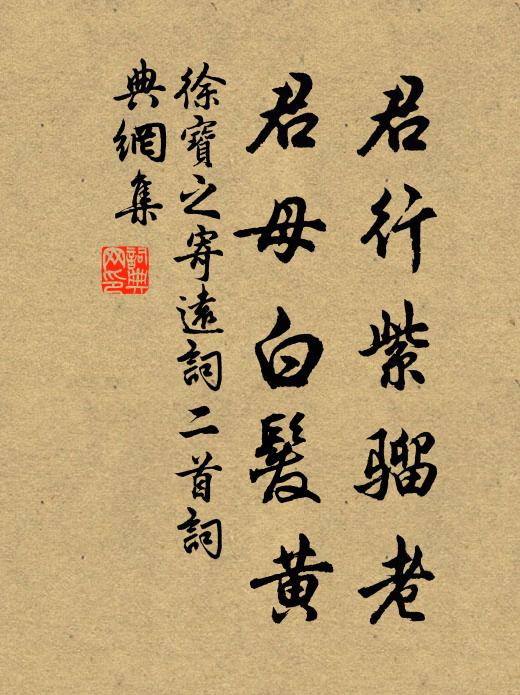 君行紫騮老
君母白髮黃
徐寶之寄遠詞二首詞
典網集
詞典网印